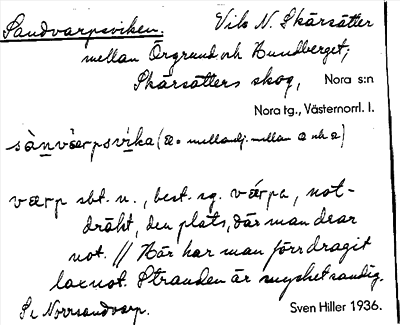 Sandvarpsviken. Vik N. Skärsätter
mellan Örgrund och Hundberget;
Skärsätters skog, Nora s:n
Nora tg., Västernorrl. l.
sà̀nvä̀rpsvika (æ = mellanlj. mellan a och e)
værp sbt. n., best. sg. værpa, not-
dräkt, den plats, där man drar
not. // Här har man förr dragit
laxnot. Stranden är mycket sandig.
Se Norrsandvarp. Sven Hiller 1936.